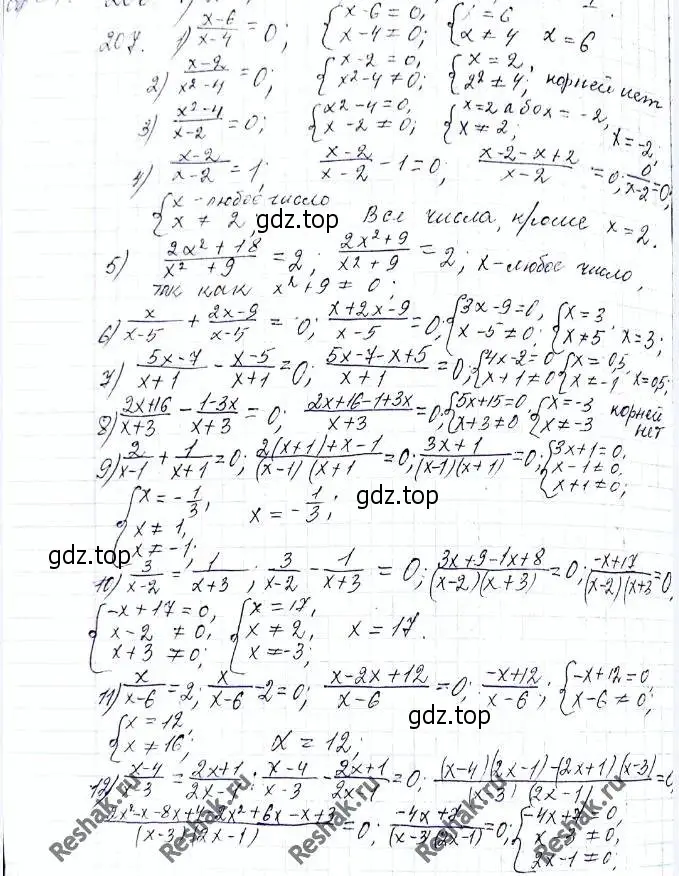 207. 1) x-6/x-4 = 0; { x-6=0, x-4=0; { x=6 x≠4 x=6
2) x-2/x²-4 = 0; { x-2=0, x²-4≠0; { x=2, 2²≠4; корней нет
3) x²-4/x-2 = 0; { x²-4=0, x-2≠0; { x=2 або x=-2, x≠2; x=-2;
4) x-2/x-2 = 1; x-2/x-2 - 1=0; x-2-x+2/x-2 = 0; 0/x-2=0;
{ x - любое число x≠2, Все числа, кроме x=2.
gdz.top
5) 2x²+18/x²+9 = 2; 2x²+9/x²+9 = 2; x-любое число,
тк как x²+9≠0;
6) x/x-5 + 2x-9/x-5 = 0; x+2x-9/x-5 = 0; { 3x-9=0, x-5≠0; { x=3 x≠5. x=3;
7) 5x-7/x+1 - x-5/x+1 = 0; 5x-7-x+5/x+1 = 0; { 4x-2=0 x+1≠0 { x=0,5, x≠-1 x=0,5;
8) 2x+16/x+3 - 1-3x/x+3 = 0; 2x+16-1+3x/x+3 = 0; { 5x+15=0. x+3≠0 { x=-3 x≠-3 корней нет
9) 2/x-1 + 1/x+1 = 0; 2(x+1)+x-1/(x-1)(x+1 = 0; 3x+1/(x-1)(x+1) = 0; { 3x+1=0, x-1≠0, x+1≠0;
{ x=-1/3, x≠1, x≠-1; x=-1/3;
gdz.top
gdz.top
10) 3/x-2 = 1/x+3; 3/x-2 - 1/x+3 = 0; 3x+9-1x+8/(x-2)(x+3) = 0; -x+17/(x-2)(x+3 = 0,
{ -x+17=0, x-2≠0, x+3≠0; { x=17, x≠2, x≠-3; x=17.
11) x/x-6 = 2; x/x-6 - 2=0; x-2x+12/x-6 = 0; -x+12/x-6; { -x+12=0 x-6≠0;
{ x=12 x≠16; x=12;
gdz.top
12) x-4/x-3 = 2x+1/2x-1; x-4/x-3 - 2x+1/2x-1 = 0; (x-4)(2x-1)-(2x+1)(x-3)/(x-3)(2x-1) = 0
2x²-x-8x+4-2x²+6x-x+3/(x-3)(2x-1) = 0; -4x+7/(x-3)(2x-1) = 0; { -4x+7=0, x-3≠0, 2x-1≠0;
Reshak.ru
Reshak.ru
Reshak.ru
Reshak.ru